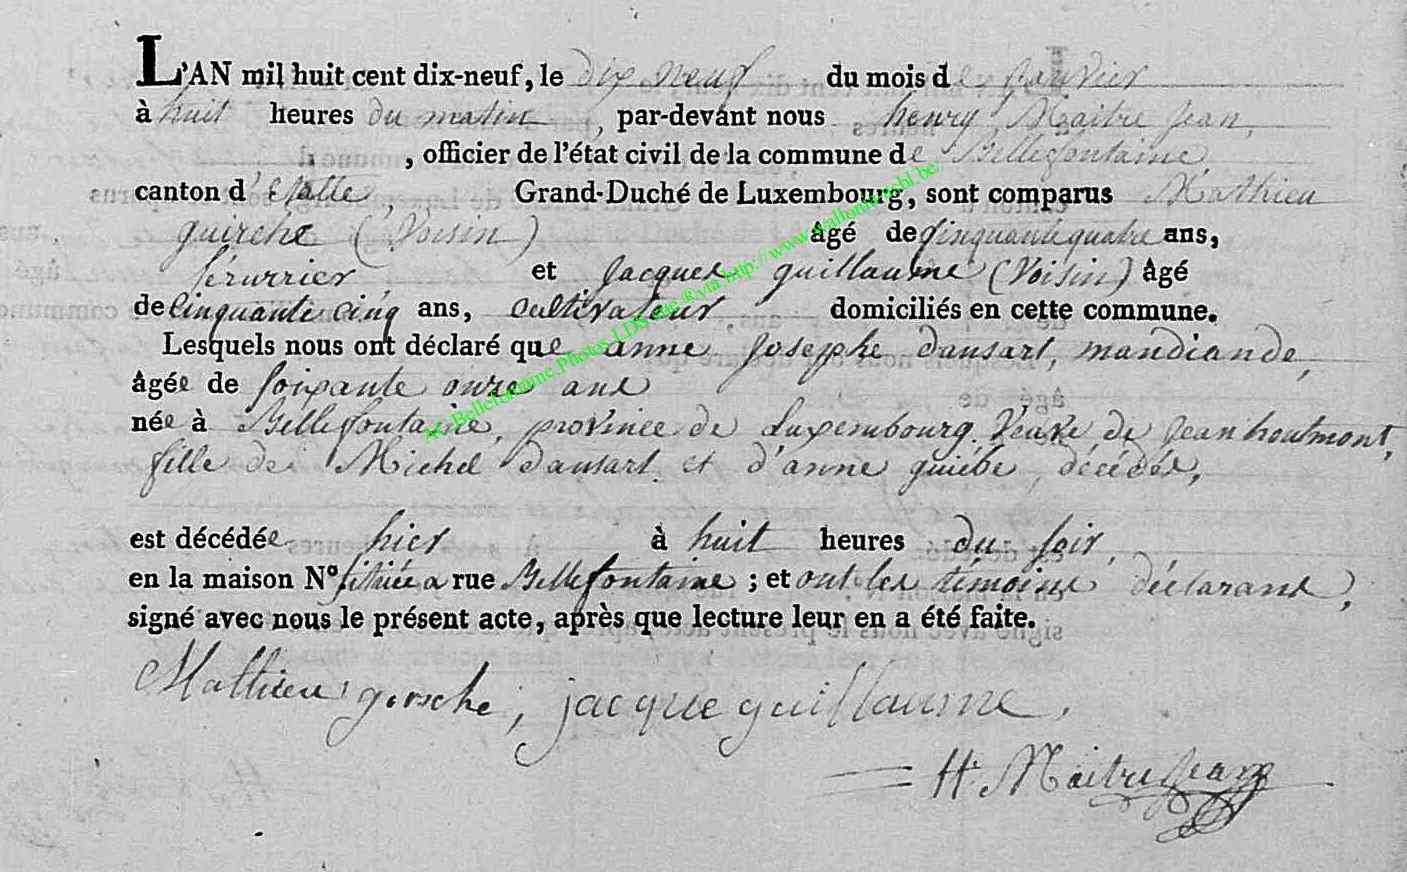 L'AN mil huit cent dix-neuf, le dix neuf du mois de Janvier
à huit heures du matin, par-devant nous henry Maitre Jean,
, officier de l'état civil de la commune de Bellefontaine
canton d'Etalle, Grand-Duché de Luxembourg, sont comparus Mathieu
guirche (Voisin) âgé de Cinquante quatre ans,
Sérurrier, et Jacques guillaume (Voisin) âgé
de Cinquante cinq ans, cultivateur domiciliés en cette commune.
Lesquels nous ont déclaré que anne Josephe dansart, mandiande,
âgée de Soixante onze ans
née à Bellefontaine, province de Luxembourg. Veuve de Jean houlmont,
fille de Michel dansart et d'anne guiébe, décédés,
est décédée hier à huit heures du soir,
en la maison Nº sitüée a rue Bellefontaine ; et ont les témoins déclarans,
signé avec nous le présent acte, après que lecture leur en a été faite.
Mathieu gorsche, jacque guillaume,
Hⁱ Maitrejean